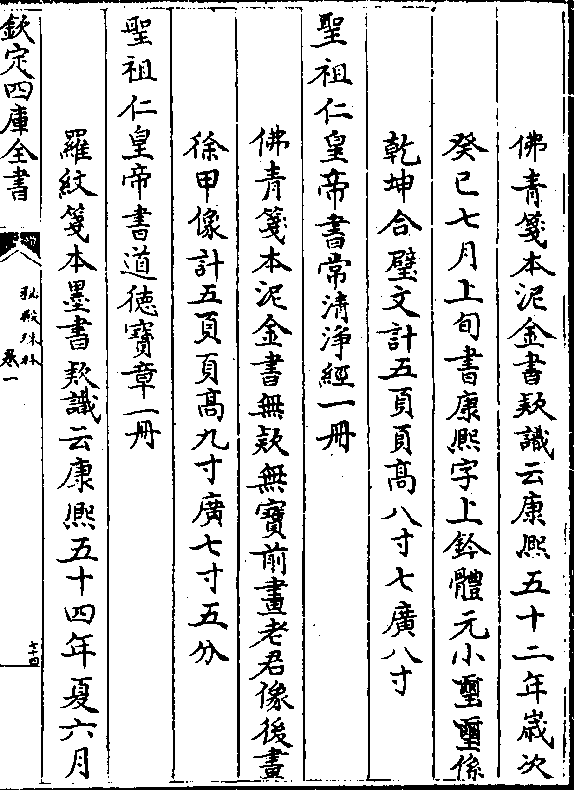 佛青箋本泥金書款識云康熙五十二年歲次
癸巳七月上旬書康熙字上鈐體元小璽璽係
乾坤合璧文計五頁頁高八寸七廣八寸
聖祖仁皇帝書常清淨經一冊
佛青箋本泥金書無款無寶前畫老君像後畫
徐甲像計五頁頁高九寸廣七寸五分
聖祖仁皇帝書道德寶章一冊
羅紋箋本墨書款識云康熙五十四年夏六月
欽定四庫全書
秘殿珠林
卷一